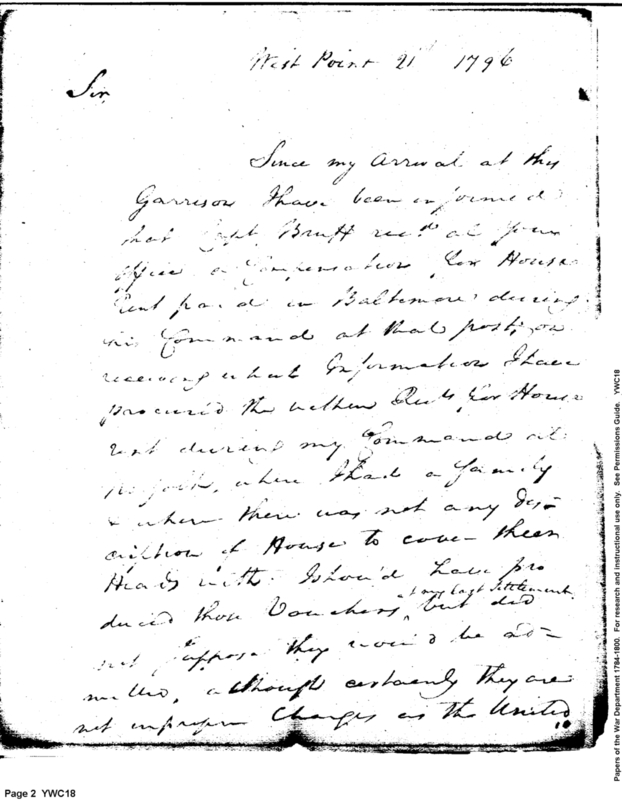 West Point 21st 1796
Sir,
Since my arrival at this
Garrison I have been informed
that Capt. Bruff recd at your
office a Compensation for House
Rent paid in Baltimore during
his Command at that post, on
receiving what Information I have
procured the within Rects for House
rent during my Command at
Norfolk, where I had a family
& where there was not any des=
cription of House to cover their
Heads with. I shou'd have pro
duced those Vouchers at my last Settlement, but did
not suppose they wou'd be ad=
mitted, although certainly they are
not improper Charges as the United
Page 2 YWC18
Papers of the War Department 1784-1800. For research and instructional use only. See Permissions Guide. YWC18